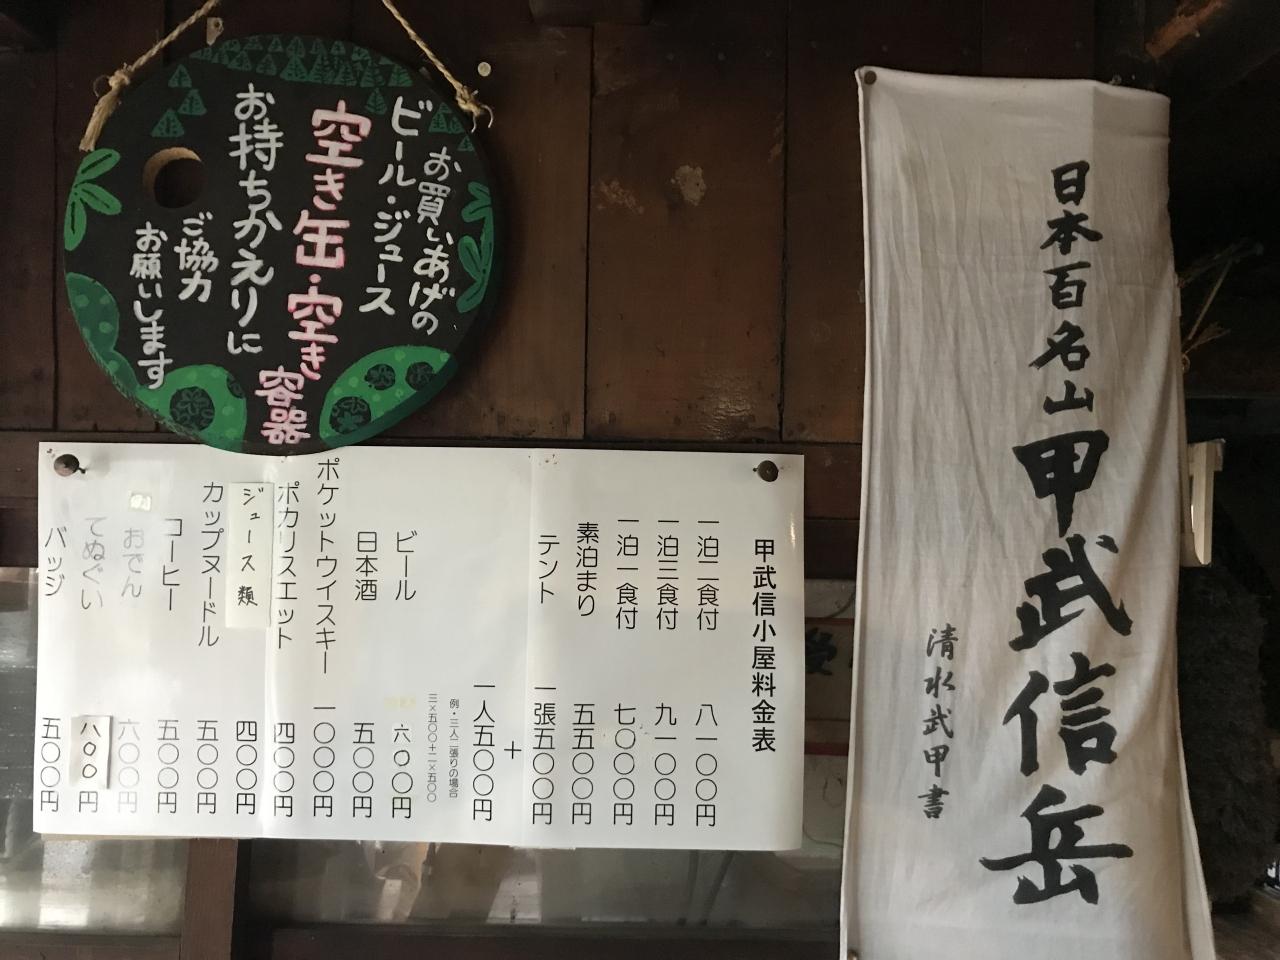 お買いあげの
ビール・ジュース
空き缶・空き容器
お持ちかえりに
ご協力
お願いします
甲武信小屋料金表
一泊二食付 八一〇〇円
一泊三食付 九一〇〇円
一泊一食付 七〇〇〇円
素泊まり 五五〇〇円
テント 一張五〇〇円
＋
一人五〇〇円
例・三人二張りの場合
三×五〇〇＋二×五〇〇
ビール 六〇〇円
日本酒 五〇〇円
ポケットウイスキー 一〇〇〇円
ポカリスエット 四〇〇円
ジュース類 四〇〇円
カップヌードル 五〇〇円
コーヒー 五〇〇円
おでん 六〇〇円
てぬぐい 八〇〇円
バッジ 五〇〇円
日本百名山甲武信岳
清水武甲書